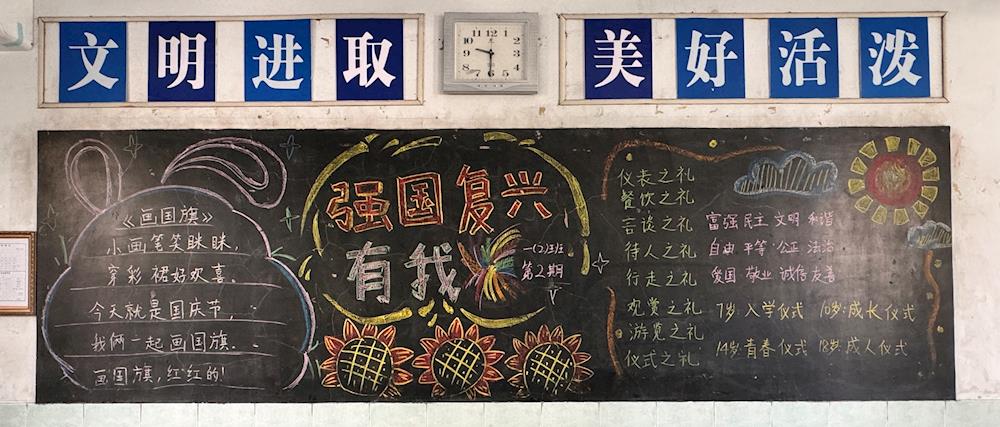 文明进取
美好活泼
《画国旗》
小画笔笑眯眯,
穿彩裙好欢喜.
今天就是国庆节,
我俩一起画国旗.
画国旗,红红的!
强国复兴
有我
一(2)班
第2期
仪表之礼
餐饮之礼
言谈之礼
待人之礼
行走之礼
观赏之礼
游览之礼
仪式之礼
富强 民主 文明 和谐
自由 平等 公正 法治
爱国 敬业 诚信 友善
7岁:入学仪式 10岁:成长仪式
14岁:青春仪式 18岁:成人仪式